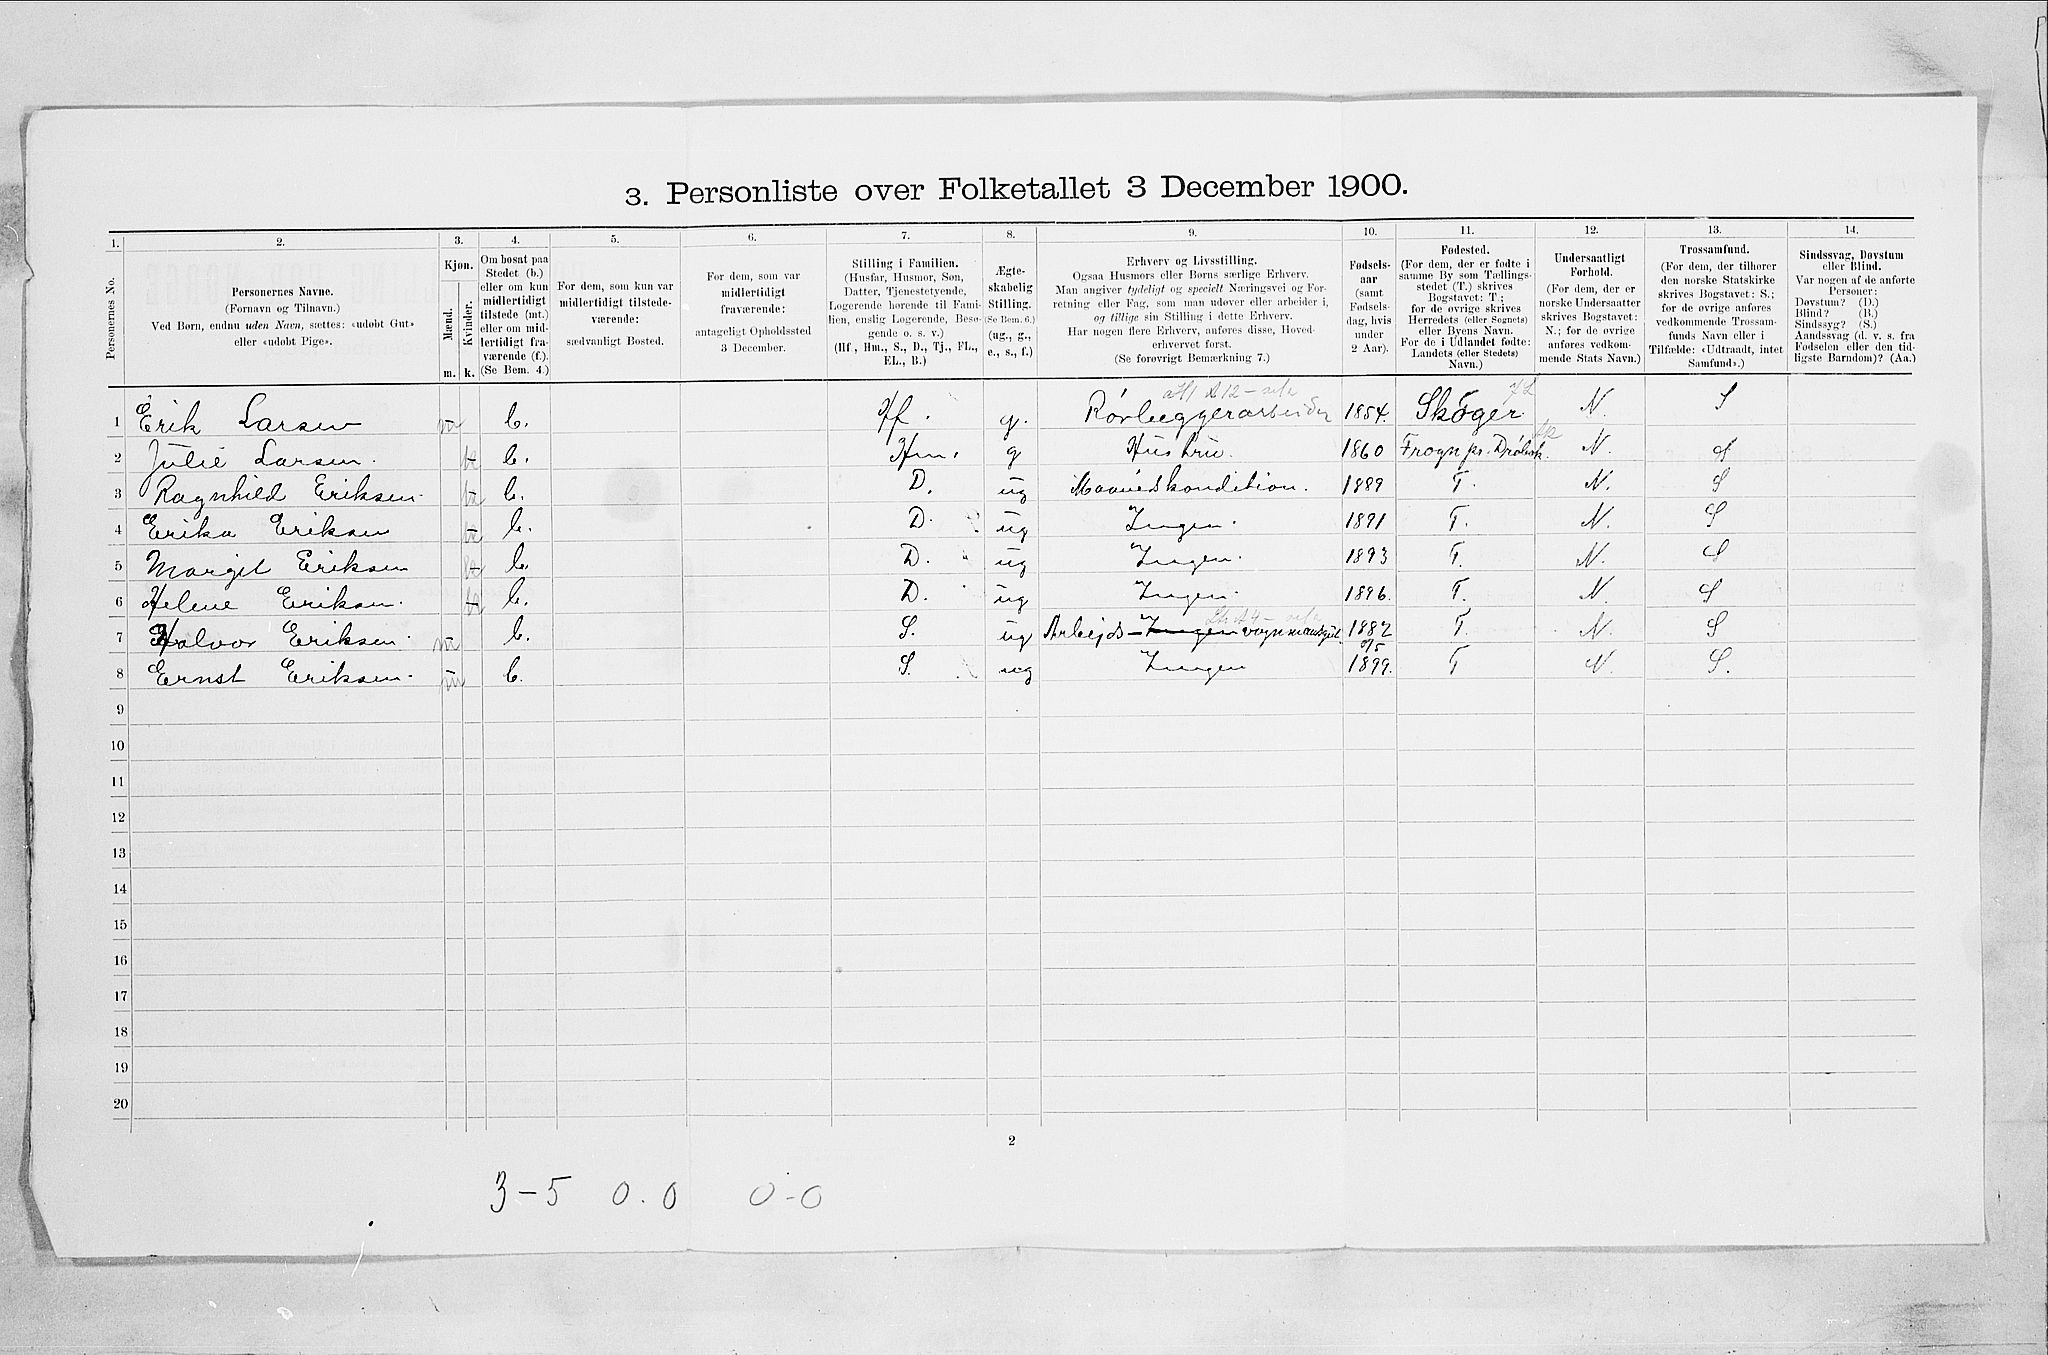 3. Personliste over Folketallet 3 December 1900.
1. 2. 3. 4. 5. 6. 7. 8. 9. 10. 11. 12. 13. 14.
Personernes No.
Personernes Navne.
(Fornavn og Tilnavn.)
Ved Børn, endnu uden Navn, sættes: «udøbt Gut»
eller «udøbt Pige».
Kjøn.
Mænd.
Kvinder.
m. k.
Om bosat paa
Stedet (b.)
eller om kun
midlertidigt
tilstede (mt.)
eller om mid-
lertidigt fra-
værende (f.)
(Se Bem. 4.)
For dem, som kun var
midlertidigt tilstede-
værende:
sædvanligt Bosted.
For dem, som var
midlertidigt
fraværende:
antageligt Opholdssted
3 December.
Stilling i Familien.
(Husfar, Husmor, Søn,
Datter, Tjenestetyende,
Logerende hørende til Fami-
lien, enslig Logerende, Besø-
gende o. s. v.)
(Hf., Hm., S., D., Tj., FL.,
EL., B.)
Ægte-
skabelig
Stilling.
(Se Bem. 6.)
(ug., g.,
e., s., f.)
Erhverv og Livsstilling.
Ogsaa Husmors eller Børns særlige Erhverv.
Man angiver tydeligt og specielt Næringsvei og For-
retning eller Fag, som man udøver eller arbeider i,
og tillige sin Stilling i dette Erhverv.
Har nogen flere Erhverv, anføres disse, Hoved-
erhvervet først.
(Se forøvrigt Bemærkning 7.)
Fødsels-
aar
(samt
Fødsels-
dag, hvis
under
2 Aar).
Fødested.
(For dem, der er fødte i
samme By som Tællings-
stedet (T.) skrives
Bogstavet: T.;
for de øvrige skrives
Herredets (eller Sognets)
eller Byens Navn.
For de i Udlandet fødte:
Landets (eller Stedets)
Navn.)
Undersaatligt
Forhold.
(For dem, der er
norske Undersaatter
skrives Bogstavet:
N.; for de øvrige
anføres vedkom-
mende Stats Navn.)
Trossamfund.
(For dem, der tilhører
den norske Statskirke
skrives Bogstavet: S.;
for de øvrige anføres
vedkommende Trossam-
funds Navn eller i
Tilfælde: «Udtraadt, intet
Samfund».)
Sindssvag, Døvstum
eller Blind.
Var nogen af de anførte
Personer:
Døvstum? (D.)
Blind? (B.)
Sindssyg? (S.)
Aandssvag (d. v. s. fra
Fødselen eller den tid-
ligste Barndom)? (Aa.)
1 Erik Larsen m b. Hf. g. Rørlæggerarbeider 1854. Skoger N. S
2 Julie Larsen. k b. Hm. g Hustru. 1860 Frogn pr. Drøbak. N. S
3 Ragnhild Eriksen. k b. D. ug Maanedskondition. 1889 T. N. S
4 Erika Eriksen k b. D. ug Ingen. 1891 T. N. S
5 Margit Eriksen k b. D. ug Ingen. 1893 T. N. S
6 Helene Eriksen. k b. D. ug Ingen. 1896. T. N. S
7 Halvor Eriksen. m b. S. ug Arbejds-Ingen vognmandsgut. 1882 T. N. S
8 Ernst Eriksen. m b. S. ug Ingen 1899. T N. S.
9
10
11
12
13
14
15
16
17
18
19
20
2
3-5 0.0 0-0